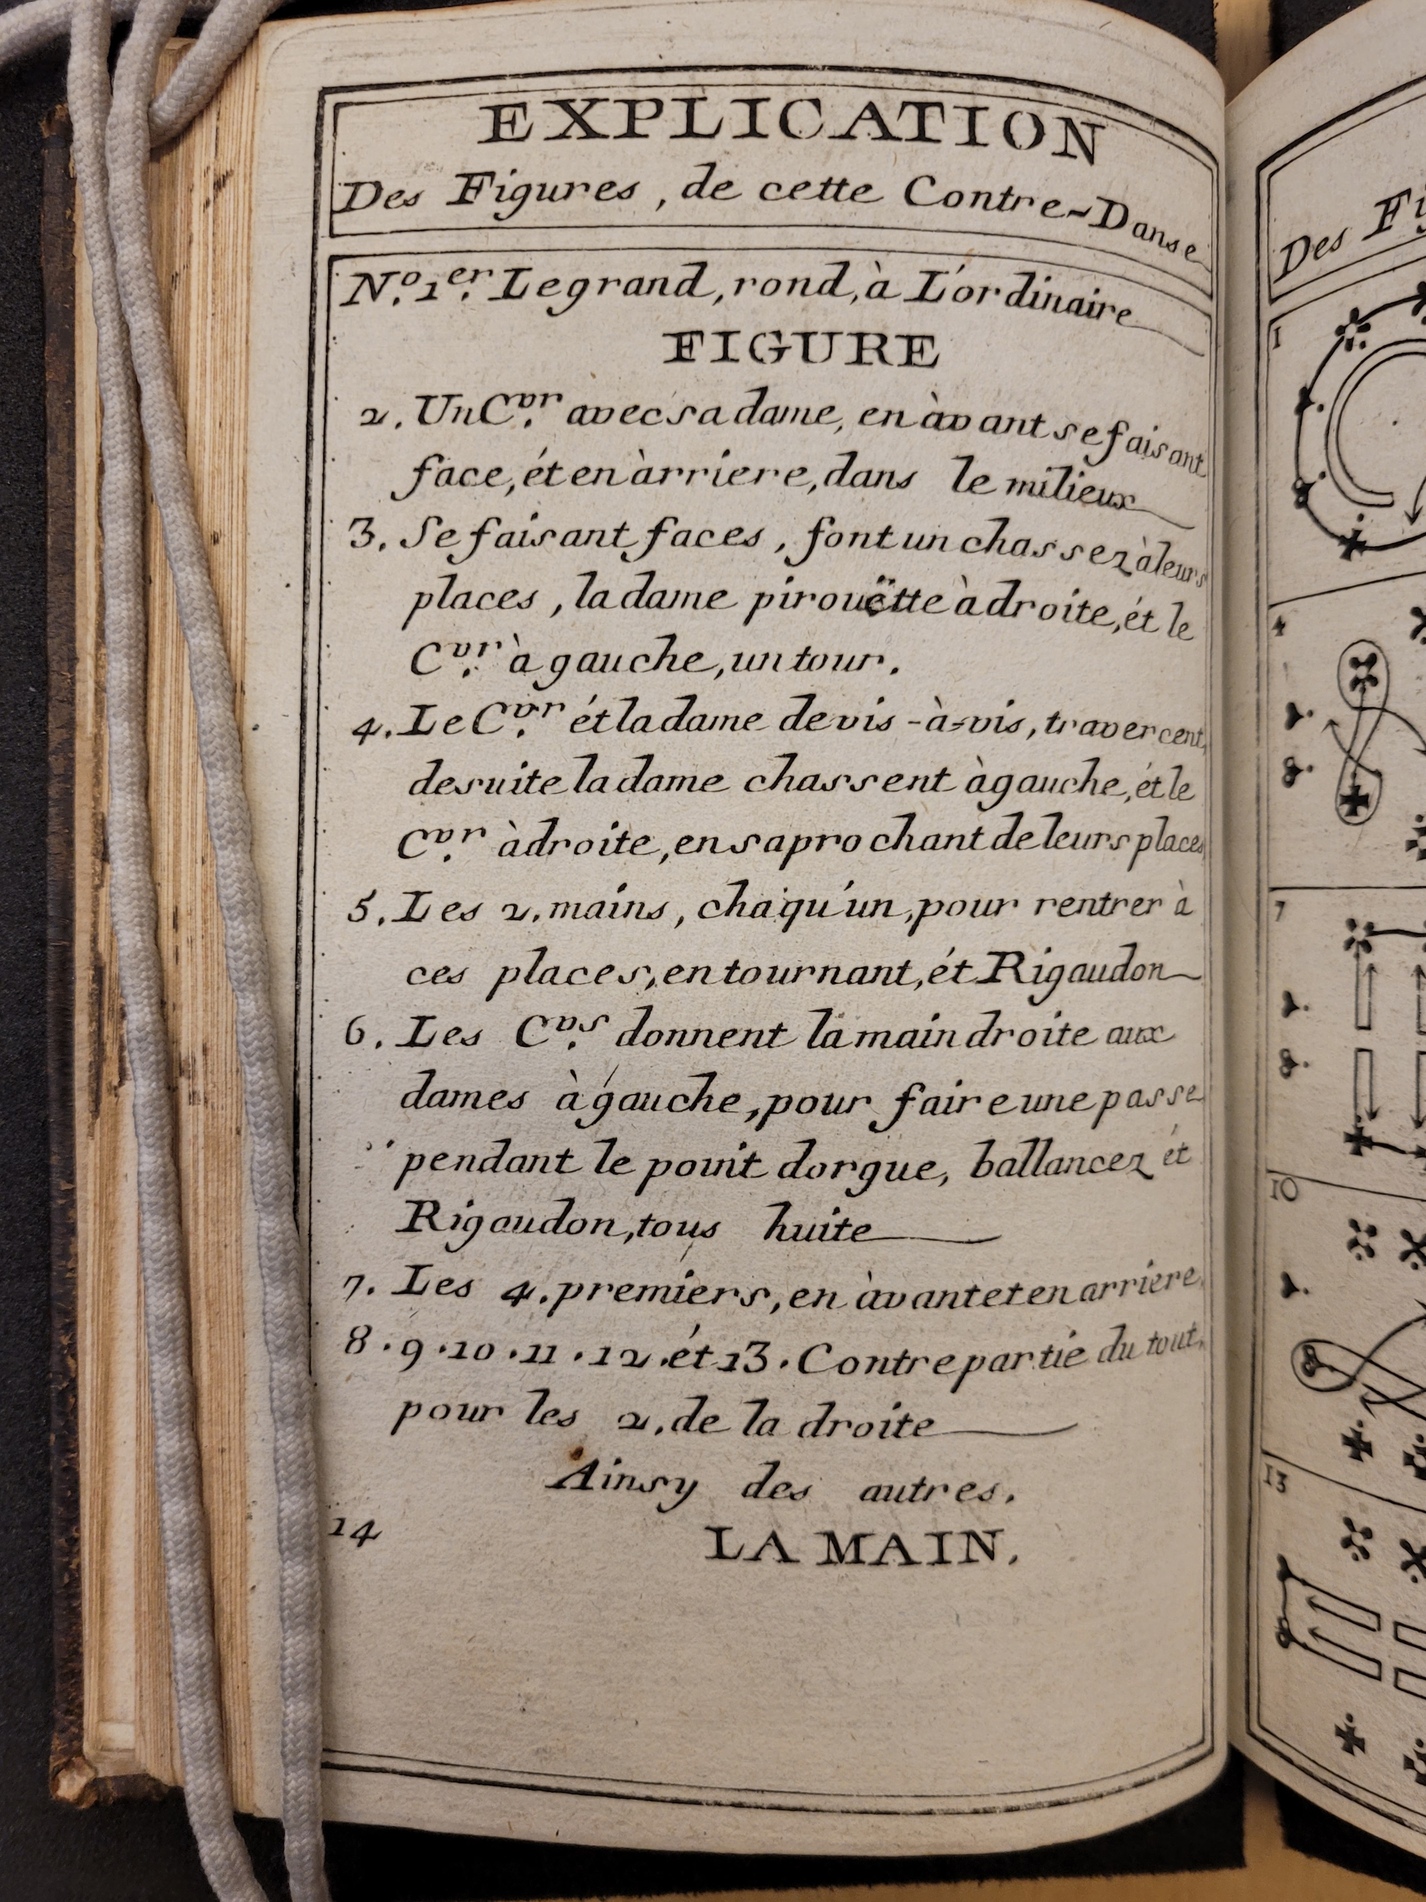 EXPLICATION
Des Figures, de cette Contre-Danse
N.º 1.er Le grand, rond, à L'ordinaire
FIGURE
2. Un C.vr avec sa dame, en àvant se faisant
face, ét en àrriere, dans le milieux
3. Se faisant faces, font un chassez à leurs
places, la dame pirouëtte à droite, ét le
C.vr à gauche, un tour.
4. Le C.vr ét la dame de vis-à-vis, travercent,
de suite la dame chassent à gauche, ét le
C.vr à droite, en saprochant de leurs places
5. Les 2. mains, chaqu'un, pour rentrer à
ces places, en tournant, ét Rigaudon
6. Les C.vs donnent la main droite aux
dames à gauche, pour faire une passe
pendant le pouit dorgue, ballancez ét
Rigaudon, tous huite
7. Les 4. premiers, en àvant et en arriere,
8. 9. 10. 11. 12. ét 13. Contre partie du tout,
pour les 2, de la droite
Ainsy des autres.
14 LA MAIN.
Des
1
4
7
10
13